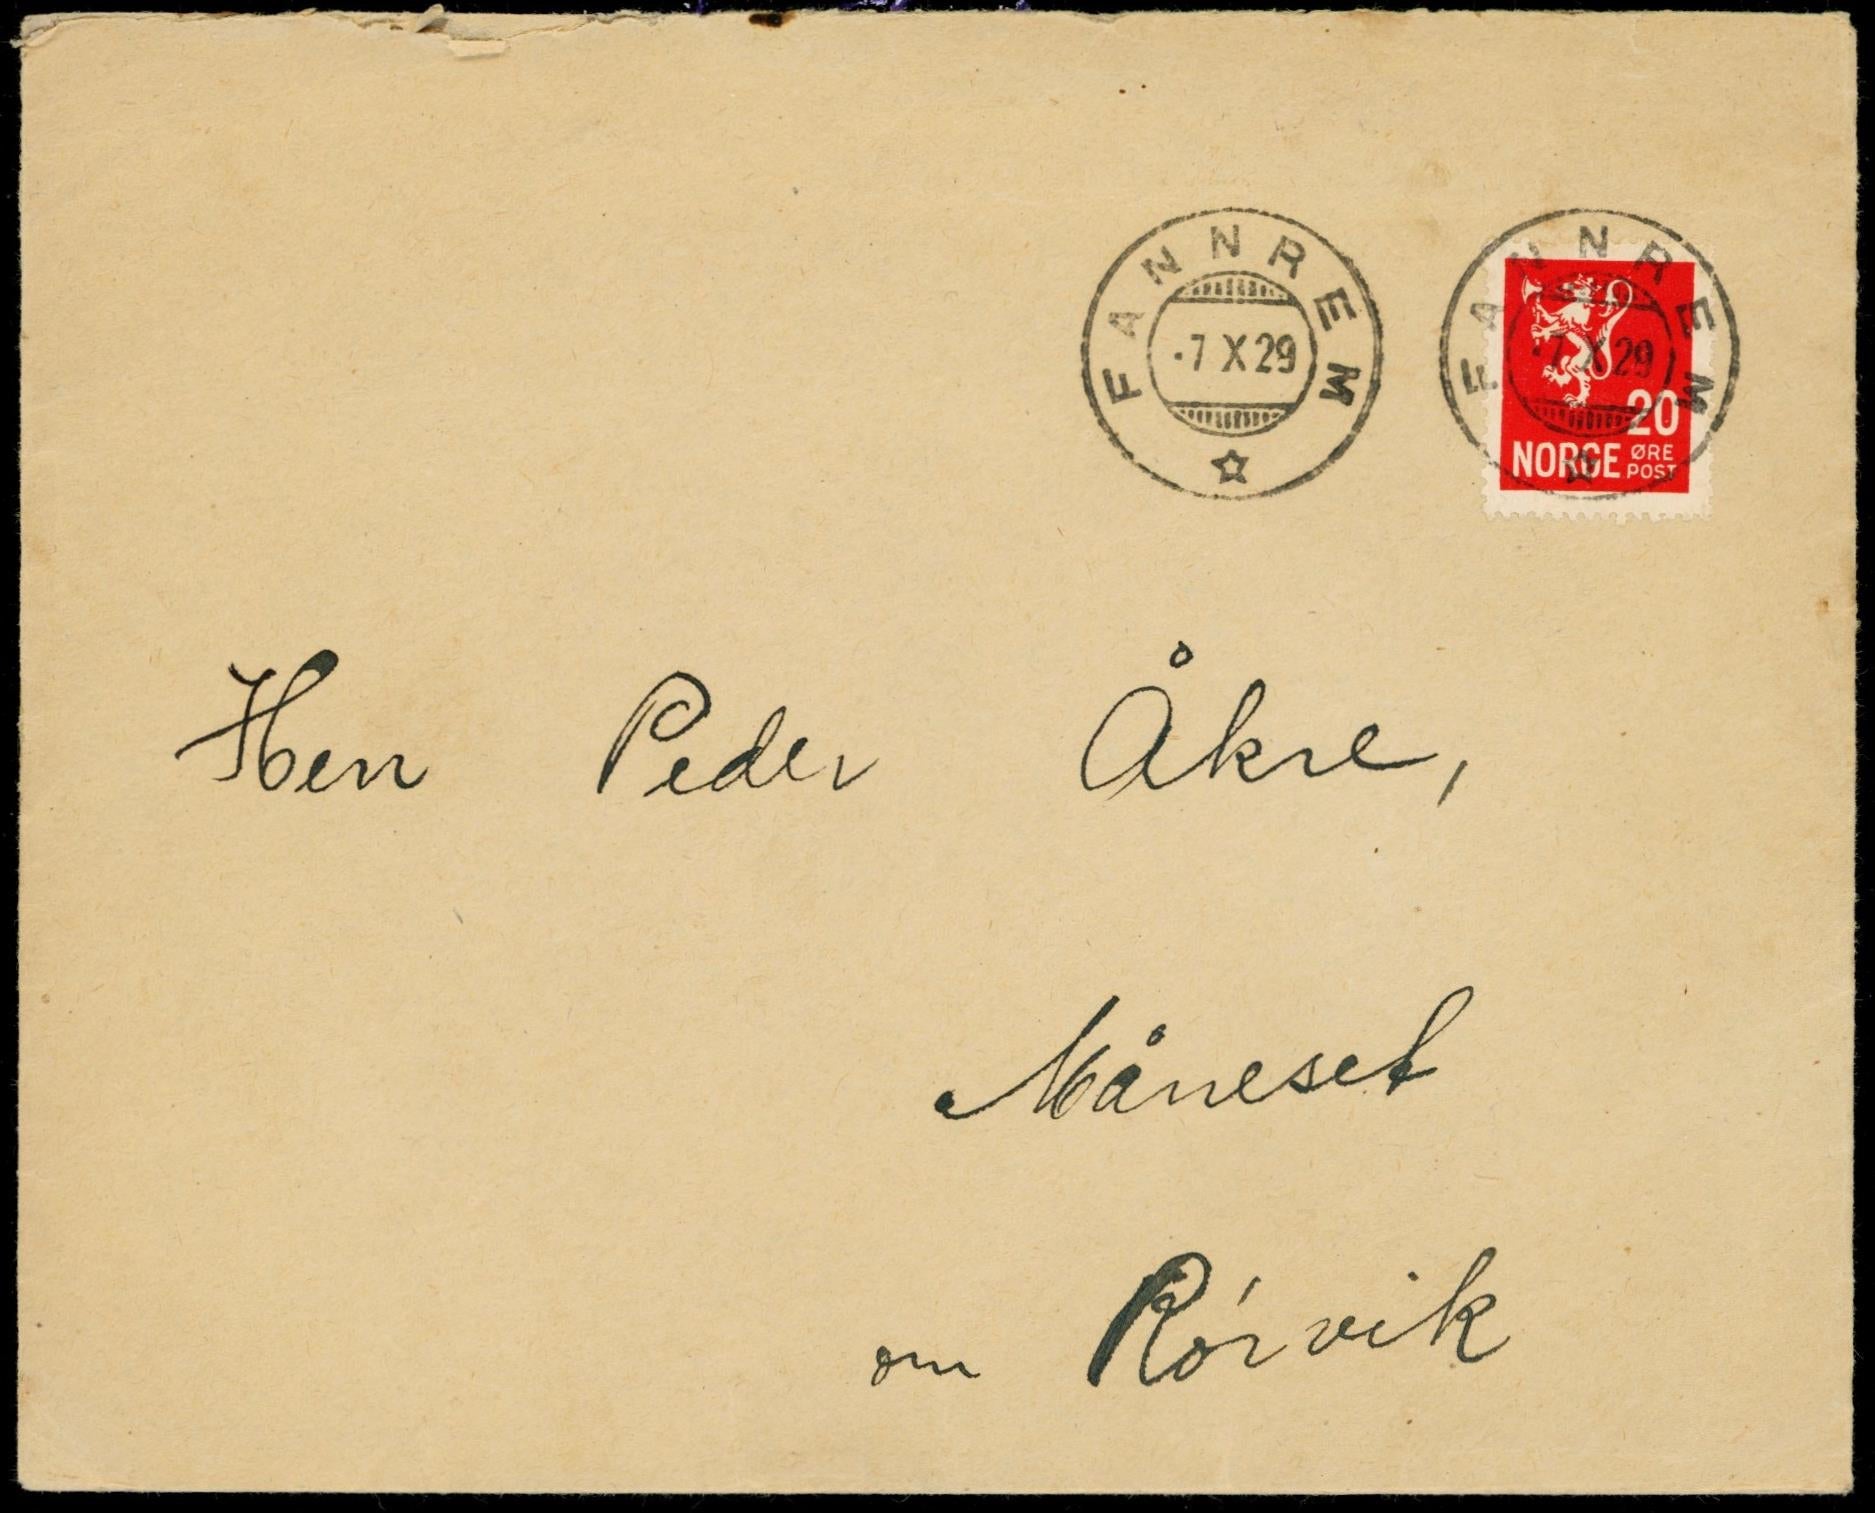 FANNREM
·7 X 29
FANNREM
·7 X 29
20
NORGE ØRE
POST
Herr Peder Åkre,
Måneset
om Rórvik